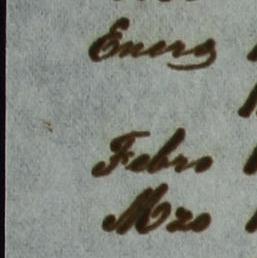 Enero
Febro
Mzo